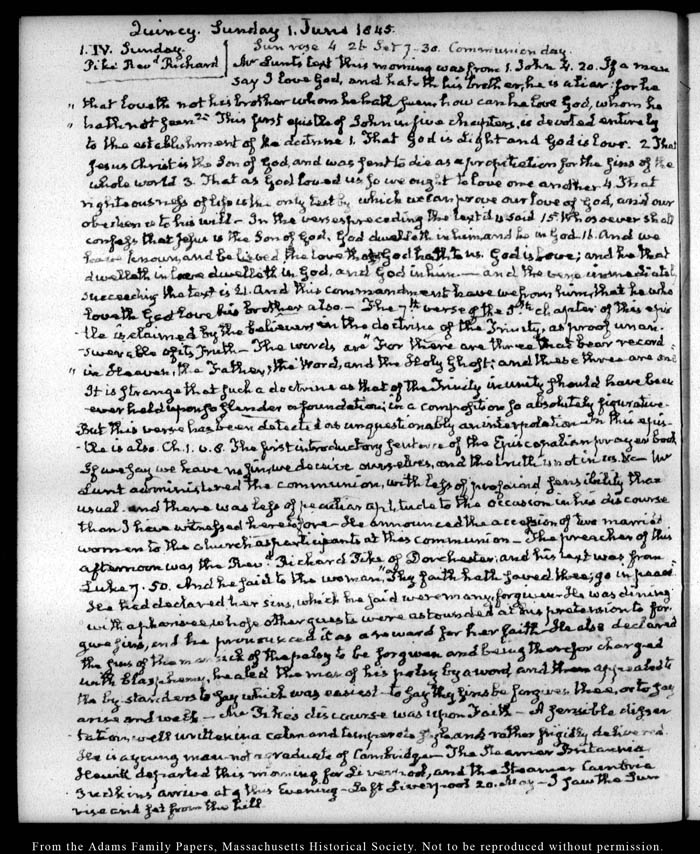 Quincy. Sunday 1. June 1845.
1. IV. Sunday. Sun rose 4 26 Set 7-30. Communion day.
Pike Revd Richard Mr Lunt's text this morning was from 1. John 4. 20. If a man
say I love God, and hateth his brother, he is a liar: for he
" that loveth not his brother whom he hath seen, how can he love God, whom he
" hath not seen?" This first epistle of John in five chapters, is devoted entirely
to the establishment of the doctrine 1. That God is Light and God is Love. 2 That
Jesus Christ is the Son of God, and was sent to die as a propitiation for the sins of the
whole world 3. That as God loved us so we ought to love one another 4. That
righteousness of life is the only test by which we can prove our love of God, and our
obedience to his will - In the verses preceding the text it is said 15. Whosoever shall
confess that Jesus is the Son of God, God dwelleth in him and he in God 16. And we
have known, and believed the love that God hath to us. God is Love; and he that
dwelleth in love dwelleth in God, and God in him. - and the verse immediately
succeeding the text is 21. And this commandment have we from him, that he who
loveth God love his brother also. - The 7th verse of the 5th chapter of this epis-
tle is claimed by the believers in the doctrine of the Trinity, as proof unan-
swerable of its truth - The words are "For there are three that bear record
" in Heaven, the Father, the Word, and the Holy Ghost; and these three are one
It is strange that such a doctrine as that of the Trinity in unity should have been
ever held upon so slender a foundation; in a composition so absolutely figurative.
But this verse has been detected as unquestionably an interpolation - In this epis-
tle is also Ch. 1. v. 8. The first introductory sentence of the Episcopalian prayer book
If we say we have no sin, we deceive ourselves, and the truth is not in us. &c - Mr
Lunt administered the communion, with less of profound sensibility than
usual. and there was less of peculiar aptitude to the occasion in his discourse
than I have witnessed heretofore - He announced the accession of two married
women to the church as participants at this communion - The preacher of this
afternoon was the Revd Richard Pike of Dorchester; and his text was from
Luke 7. 50. And he said to the woman, "Thy faith hath saved thee; go in peace.
He had declared her sins, which he said were many, forgiven. He was dining
with a pharisee, whose other guests were astounded at his pretension to for-
give sins, and he pronounced it as a reward for her faith. He also declared
the sins of the man sick of the palsy to be forgiven and being therefor charged
with blasphemy, healed the man of his palsy by a word, and then appealed to
the by-standers to say which was easiest - to say thy sins be forgiven thee, or to say
arise and walk - Mr Pike's discourse was upon Faith - A sensible disser-
tation, well written in a calm and temperate style, and rather frigidly delivered.
He is a young man - not a graduate of Cambridge - The Steamer Britannia
Hewitt departed this morning for Liverpool, and the Steamer Cambria
Judkins arrived at 9 this Evening - Left Liverpool 20. May - I saw the Sun
rise and set from the hill.
From the Adams Family Papers, Massachusetts Historical Society. Not to be reproduced without permission.